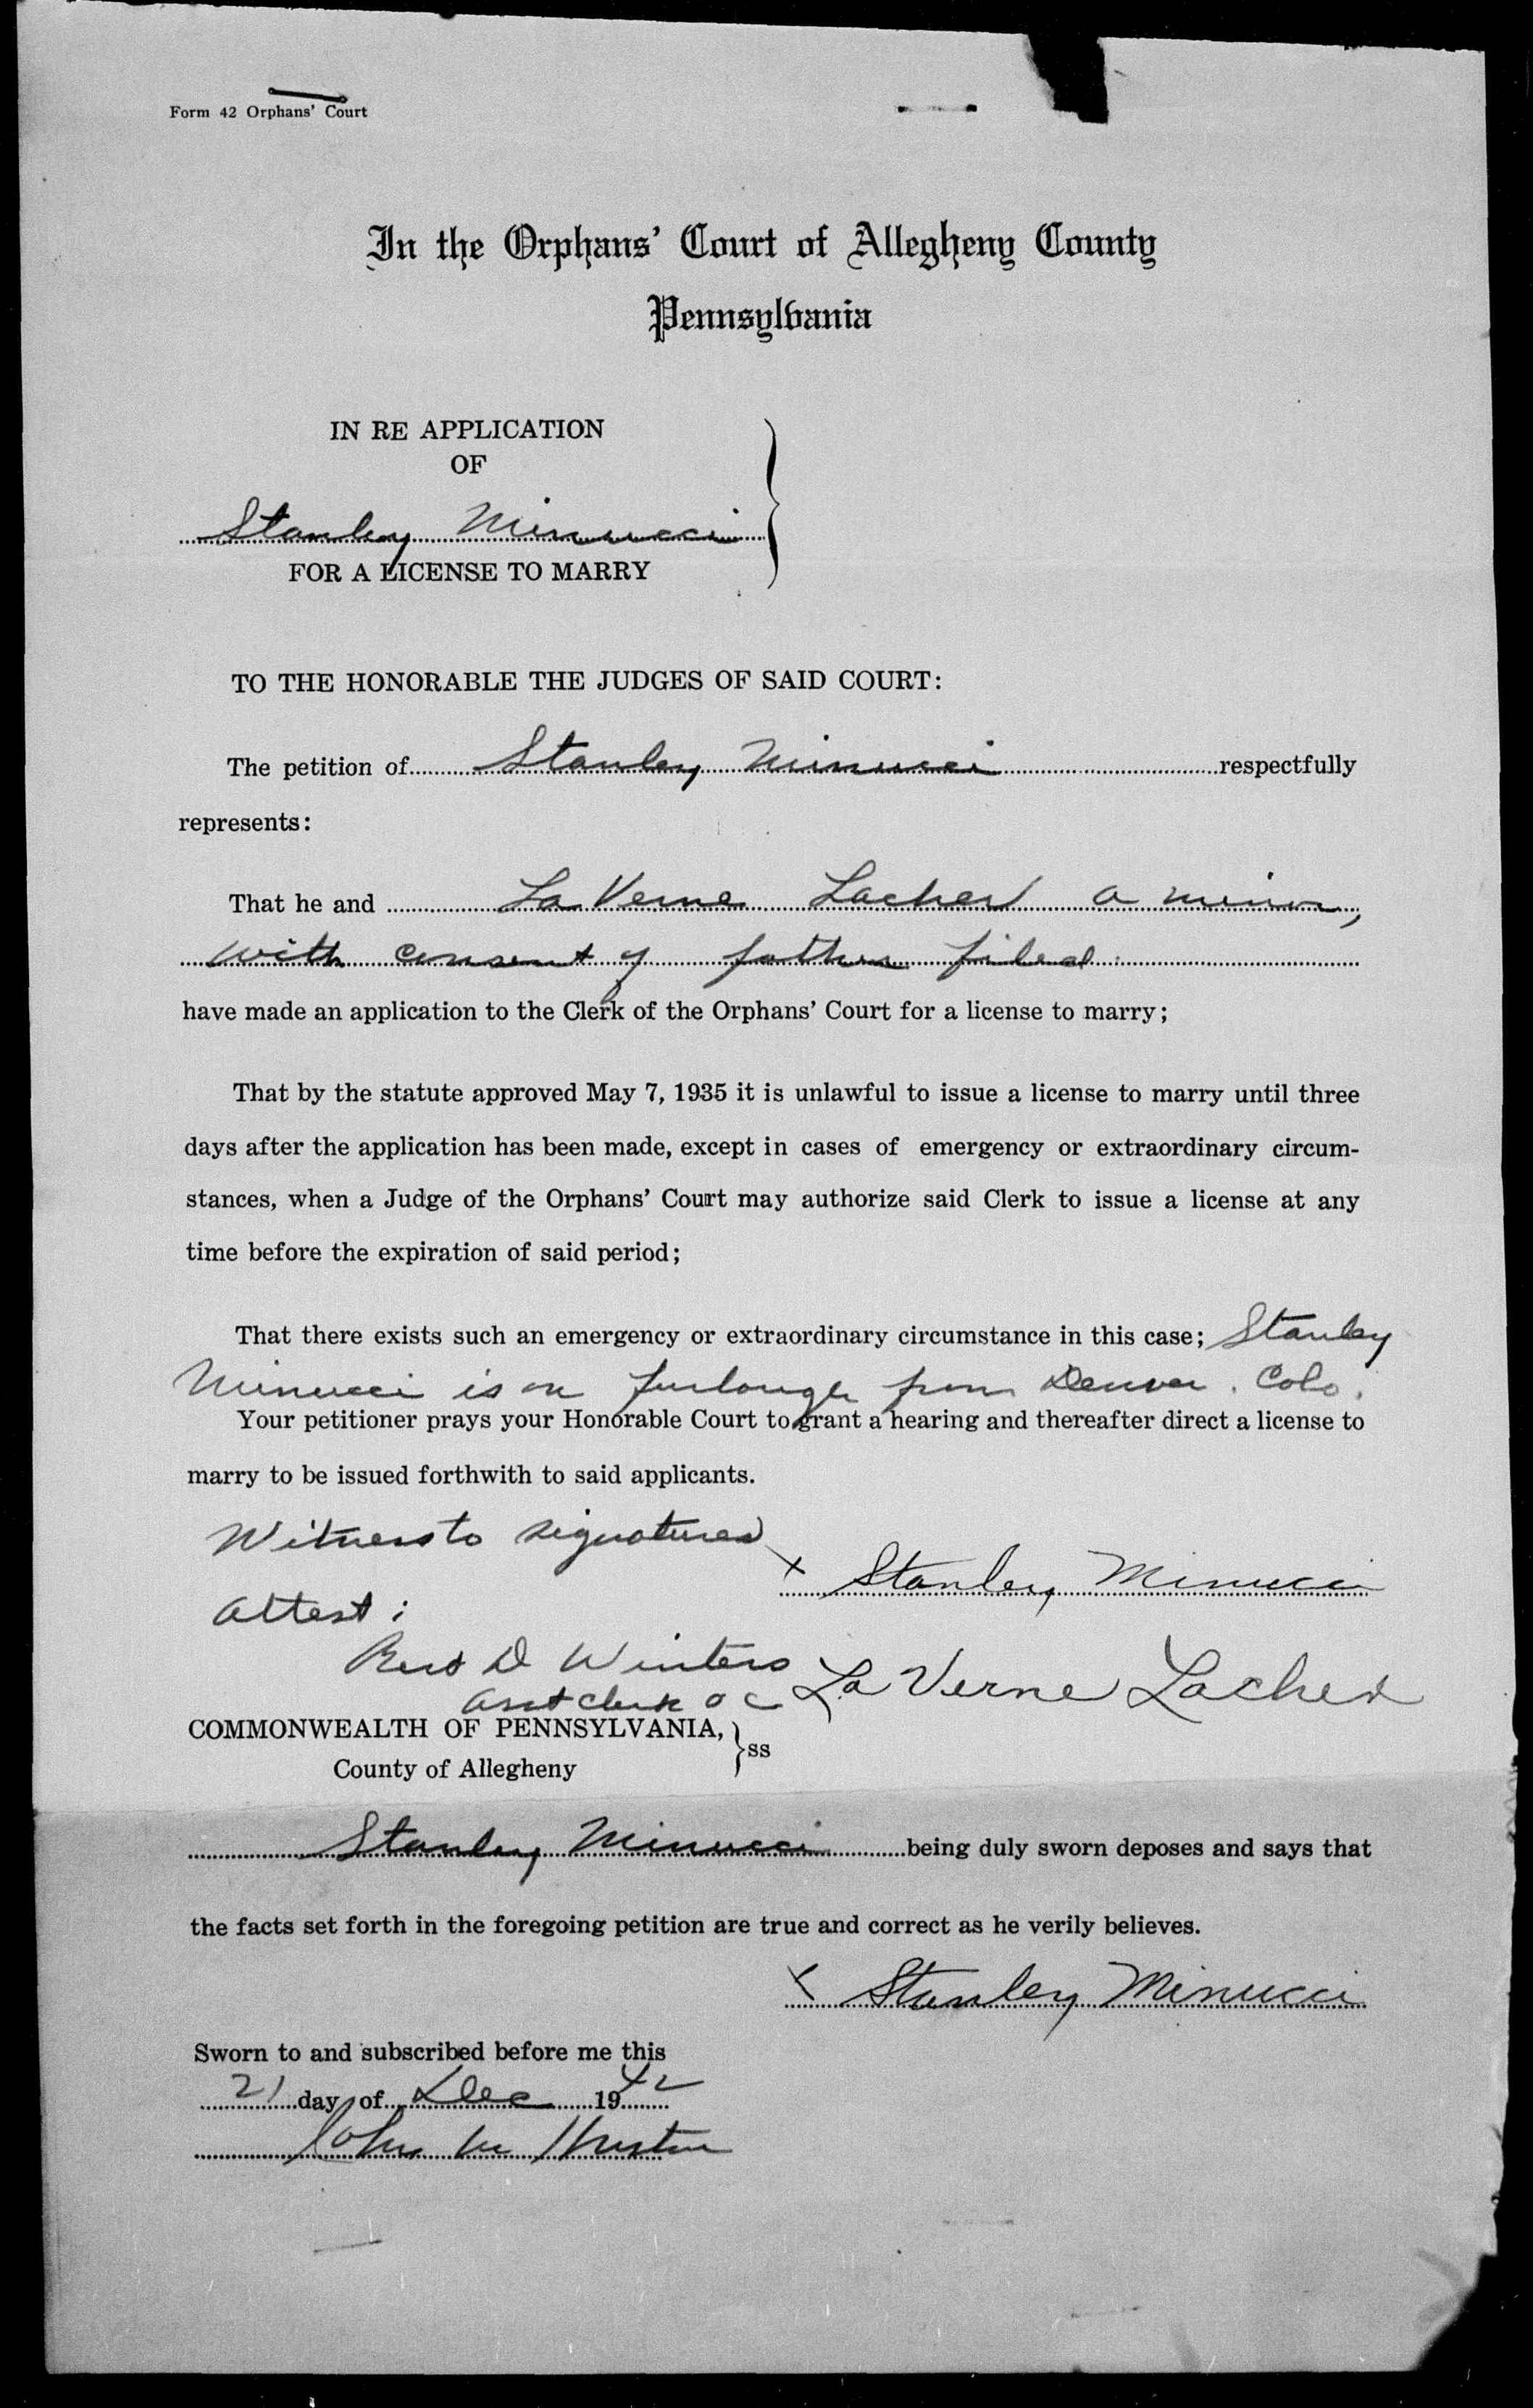 Form 42 Orphans' Court
In the Orphans' Court of Allegheny County
Pennsylvania
IN RE APPLICATION
OF
Stanley Minucci
FOR A LICENSE TO MARRY
TO THE HONORABLE THE JUDGES OF SAID COURT:
The petition of Stanley Minucci respectfully
represents:
That he and La Verne Lacher a minor,
with consent of father filed.
have made an application to the Clerk of the Orphans' Court for a license to marry;
That by the statute approved May 7, 1935 it is unlawful to issue a license to marry until three
days after the application has been made, except in cases of emergency or extraordinary circum-
stances, when a Judge of the Orphans' Court may authorize said Clerk to issue a license at any
time before the expiration of said period;
That there exists such an emergency or extraordinary circumstance in this case; Stanley
Minucci is on furlough from Denver. Colo.
Your petitioner prays your Honorable Court to grant a hearing and thereafter direct a license to
marry to be issued forthwith to said applicants.
Witness to signatures
x Stanley Minucci
Attest:
D Winters
Asst Clerk O C La Verne Lacher
COMMONWEALTH OF PENNSYLVANIA, } ss
County of Allegheny
Stanley Minucci being duly sworn deposes and says that
the facts set forth in the foregoing petition are true and correct as he verily believes.
x Stanley Minucci
Sworn to and subscribed before me this
21 day of Dec 1942
John M Huston